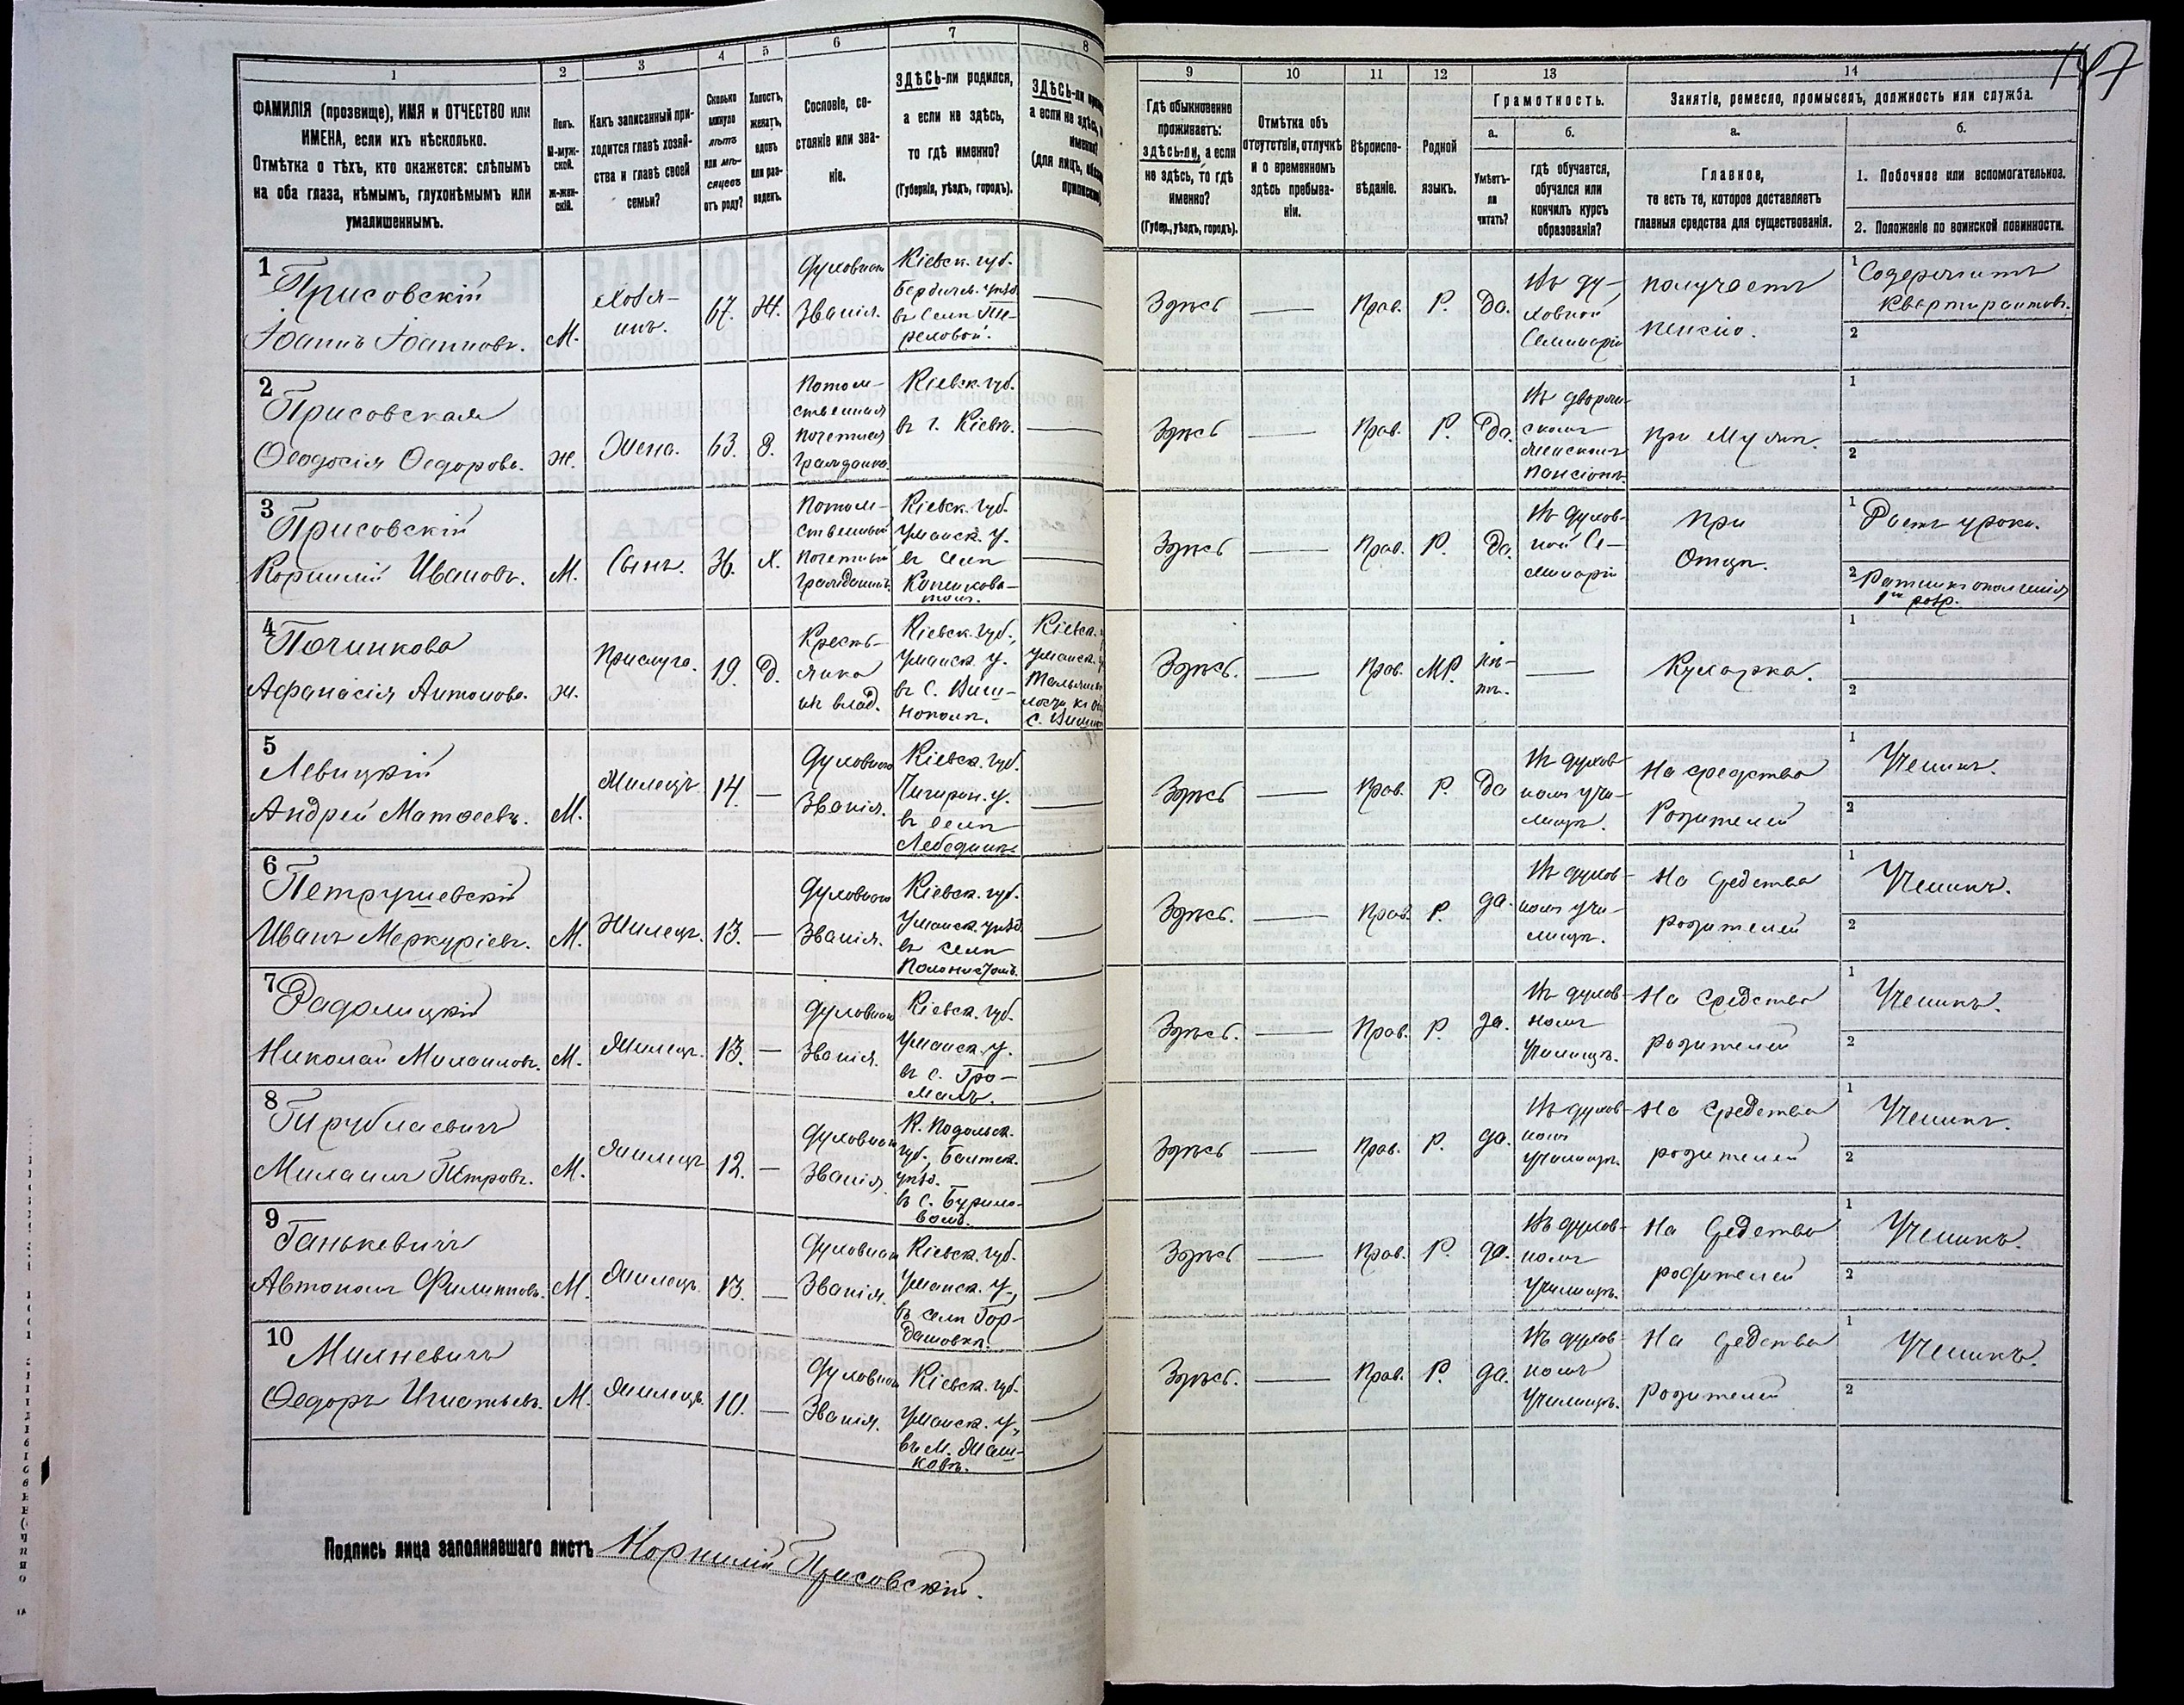 147
1
2
3
4
5
6
7
8
9
10
11
12
13
14
ФАМИЛІЯ (прозвище), ИМЯ и ОТЧЕСТВО или
ИМЕНА, если ихъ нѣсколько.
Отмѣтка о тѣхъ, кто окажется: слѣпымъ
на оба глаза, нѣмымъ, глухонѣмымъ или
умалишеннымъ.
Полъ.
М-муж-
ской.
ж-жен-
скій.
Какъ записанный при-
ходится главѣ хозяй-
ства и главѣ своей
семьи?
Сколько
минуло
лѣтъ
или мѣ-
сяцевъ
отъ роду?
Холостъ,
женатъ,
вдовъ
или раз-
веденъ.
Сословіе, со-
стояніе или зва-
ніе.
ЗДѢСЬ-ли родился,
а если не здѣсь,
то гдѣ именно?
(Губернія, уѣздъ, городъ).
ЗДѢСЬ-ли
а если не здѣсь,
(для лицъ,
Гдѣ обыкновенно
проживаетъ:
здѣсь-ли, а если
не здѣсь, то гдѣ
именно?
(Губер., уѣздъ, городъ).
Отмѣтка объ
отсутствіи, отлучкѣ
и о временномъ
здѣсь пребыва-
ніи.
Вѣроиспо-
вѣданіе.
Родной
языкъ.
Грамотность.
а.
б.
Умѣетъ-
ли
читать?
гдѣ обучается,
обучался или
кончилъ курсъ
образованія?
Занятіе, ремесло, промыселъ, должность или служба.
а.
б.
Главное,
то есть то, которое доставляетъ
главныя средства для существованія.
1. Побочное или вспомогательное.
2. Положеніе по воинской повинности.
1
Присовскій
Іоаннъ Іоанновъ.
М.
Хозя-
инъ.
67.
Ж.
Духовнаго
Званія.
Кіевск. губ.
Бердичев. уѣзд.
въ селѣ
Здѣсь
Прав.
Р.
Да.
Въ ду-
ховной
Семинаріи
получаетъ
пенсію.
1 Содержитъ
квартирантовъ.
2
2
Присовская
Ѳеодосія Ѳедорова.
ж.
Жена.
63.
З.
Потом-
ственная
почетная
Гражданка.
Кіевск. губ.
въ г. Кіевѣ.
Здѣсь
Прав.
Р.
Да.
Въ дворян-
скомъ
женскомъ
пансіонѣ
при Мужѣ.
1
2
3
Присовскій
Корнилій Ивановъ.
М.
Сынъ.
36.
Х.
Потом-
ственный
почетный
Гражданинъ.
Кіевск. губ.
Уманск. у.
въ селѣ
Конелкова-
Здѣсь
Прав.
Р.
Да.
Въ духов-
ной Се-
минаріи
При
Отцѣ.
1 Даетъ уроки.
2 Ратникъ ополченія
1го разр.
4
Починкова
Аѳанасія Антонова.
ж.
Прислуга.
19.
Д.
Кресть-
янка
из влад.
Кіевск. губ.,
Уманск. у.
въ с. Виш-
нополѣ.
Кіевск.
Уманск.
Здѣсь.
Прав.
МР.
нѣ-
тъ.
Кухарка.
1
2
5
Левицкій
Андрей Матѳеевъ.
М.
Жилецъ.
14.
Духовнаго
Званія.
Кіевск. губ.
Чигирин. у.
въ селѣ
Лебединѣ
Здѣсь
Прав.
Р.
Да
Въ духов-
номъ учи-
лищѣ.
На средства
Родителей
1 Ученикъ.
2
6
Петрушевскій
Иванъ Меркуріевъ.
М.
Жилецъ.
13.
Духовнаго
Званія.
Кіевск. губ.
Уманск. уѣзд.
въ селѣ
Полонистомъ.
Здѣсь.
Прав.
Р.
да.
Въ духов-
номъ учи-
лищѣ.
На средства
родителей
1 Ученикъ.
2
7
Радомицкій
Николай Михаиловъ.
М.
Жилецъ.
13.
Духовнаго
Званія.
Кіевск. губ.
Уманск. у.
въ с. Гро-
махъ.
Здѣсь.
Прав.
Р.
да.
Въ духов-
номъ
Училищѣ.
На средства
родителей
1 Ученикъ.
2
8
Михаилъ Петровъ.
М.
Жилецъ
12.
Духовнаго
Званія.
К. Подольск.
губ., Балтск.
уѣзд.
въ с.
Здѣсь
Прав.
Р.
да.
Въ духов-
номъ
училищѣ.
На средства
родителей
1 Ученикъ.
2
9
Ганькевичъ
Автономъ Филипповъ.
М.
Жилецъ.
13.
Духовнаго
Званія.
Кіевск. губ.
Уманск. у,
въ селѣ Гор-
дашовкѣ.
Здѣсь
Прав.
Р.
да.
Въ духов-
номъ
Училищѣ.
На средства
родителей
1 Ученикъ.
2
10
Михневичъ
Ѳедоръ Игнатьевъ.
М.
Жилецъ.
10.
Духовнаго
Званія.
Кіевск. губ.
Уманск. у,
въ м.
Здѣсь.
Прав.
Р.
да.
Въ духов-
номъ
Училищѣ.
На средства
Родителей
1 Ученикъ.
2
Подпись лица заполнявшаго листъ Корнилій Присовскій.